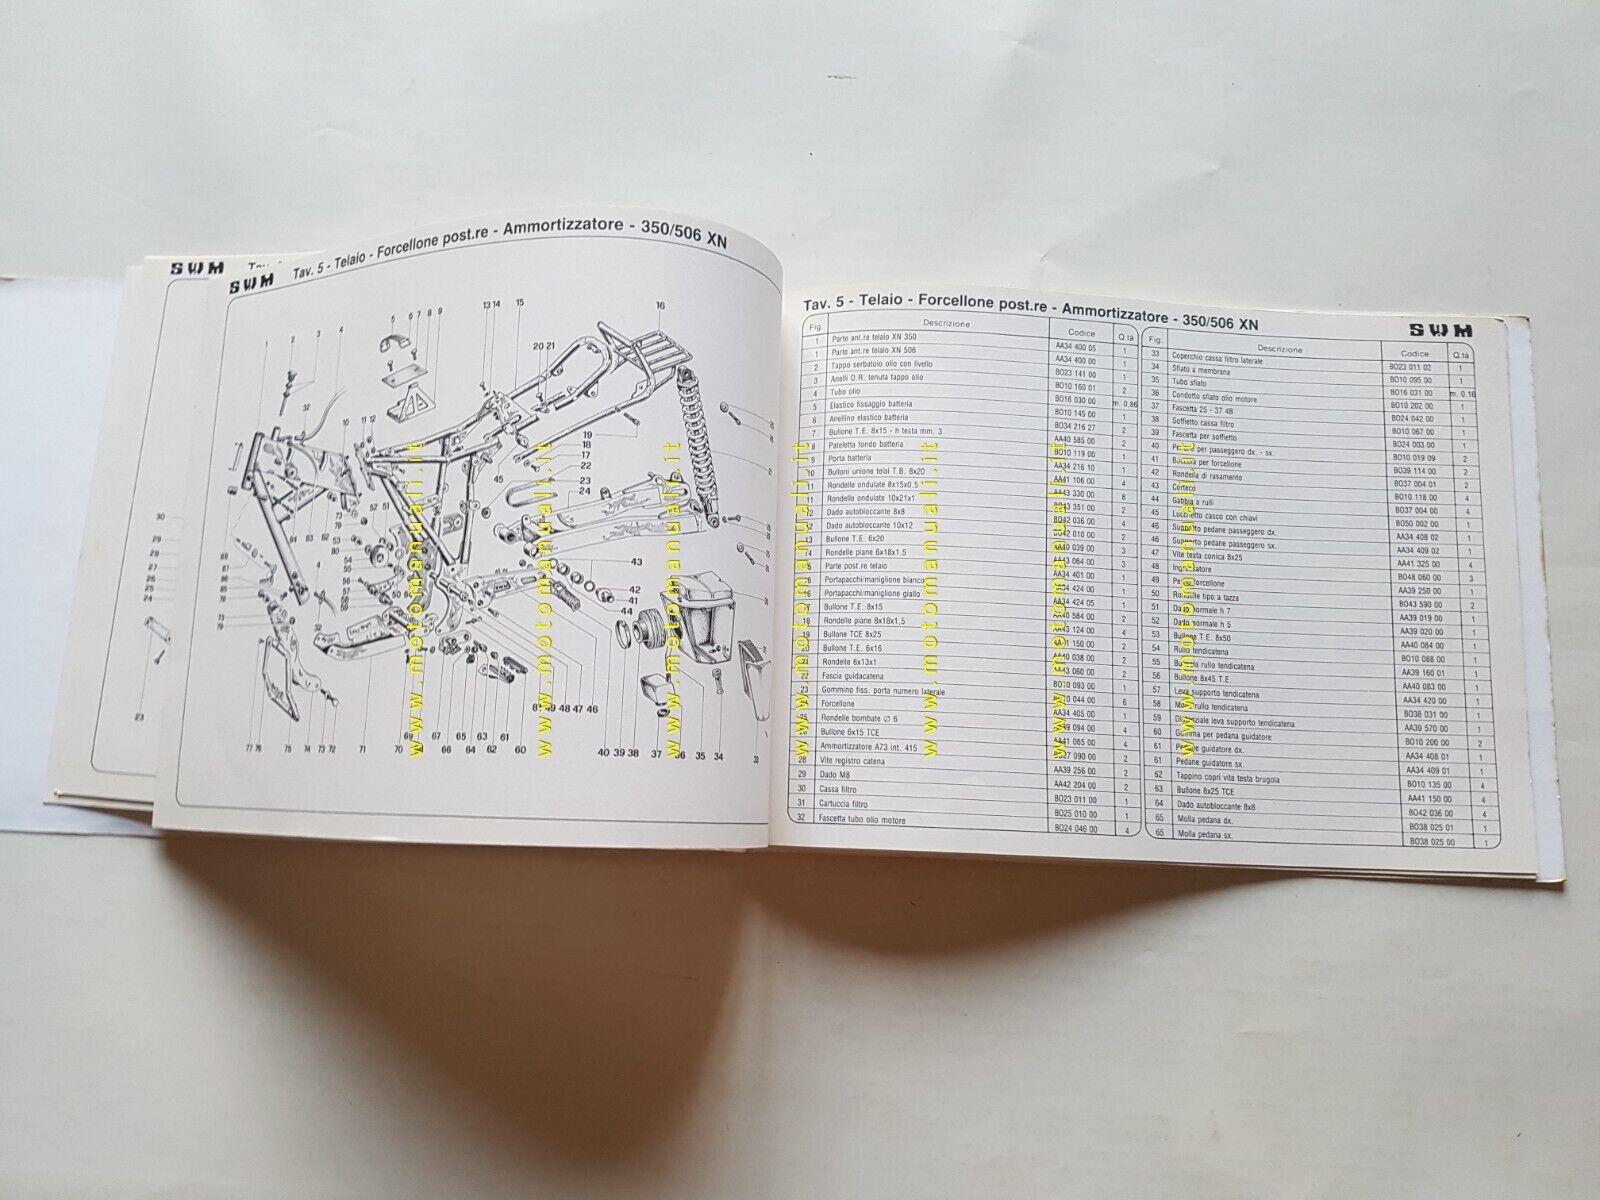 SWM
SWM Tav. 5 - Telaio - Forcellone post.re - Ammortizzatore - 350/506 XN
1 2 3 4 5 6 7 8 9 13 14 15 16
20 21
32 10 11 12
19
18
17
22
23
24
45
52 51
43
42
41
44
81 49 48 47 46
77 76 75 74 73 72 71 70 69 67 66 65 64 63 62 61 60
40 39 38 37 36 35 34 33
30
29
28
27
26
25
24
23
Tav. 5 - Telaio - Forcellone post.re - Ammortizzatore - 350/506 XN SWM
Fig. Descrizione Codice Q.tà
1 Parte ant.re telaio XN 350 AA34 400 05 1
1 Parte ant.re telaio XN 506 AA34 400 00 1
2 Tappo serbatoio olio con livello BO23 141 00 1
3 Anelli O.R. tenuta tappo olio BO10 160 01 2
4 Tubo olio BO16 030 00 m. 0.86
5 Elastico fissaggio batteria BO10 145 00 1
6 Anellino elastico batteria BO34 216 27 2
7 Bullone T.E. 8x15 - h testa mm. 3 AA40 585 00 2
8 Pateletta fondo batteria BO10 119 00 1
9 Porta batteria AA34 216 10 1
10 Bulloni unione telai T.B. 8x20 AA41 106 00 4
11 Rondelle ondulate 8x15x0.5 AA43 330 00 8
11 Rondelle ondulate 10x21x1 AA43 351 00 2
12 Dado autobloccante 8x8 BO42 036 00 4
12 Dado autobloccante 10x12 BO42 010 00 2
13 Bullone T.E. 6x20 AA40 039 00 3
14 Rondelle piane 6x18x1.5 AA43 064 00 3
15 Parte post.re telaio AA34 401 00 1
16 Portapacchi/maniglione bianco AA34 424 00 1
16 Portapacchi/maniglione giallo AA34 424 05 1
17 Bullone T.E. 8x15 AA40 584 00 2
18 Rondelle piane 8x18x1,5 AA43 124 00 4
19 Bullone TCE 8x25 AA41 150 00 2
20 Bullone T.E. 6x16 AA40 038 00 2
21 Rondelle 6x13x1 AA43 060 00 2
22 Fascia guidacatena BO10 093 00 1
23 Gommino fiss. porta numero laterale BO10 044 00 6
24 Forcellone AA34 405 00 1
25 Rondelle bombate ∅ 6 AA39 094 00 4
26 Bullone 6x15 TCE AA41 065 00 4
27 Ammortizzatore A73 int. 415 BO27 090 00 2
28 Vite registro catena AA39 256 00 2
29 Dado M8 AA42 204 00 2
30 Cassa filtro BO23 011 00 1
31 Cartuccia filtro BO25 010 00 1
32 Fascetta tubo olio motore BO24 046 00 4
Fig. Descrizione Codice Q.tà
33 Coperchio cassa filtro laterale BO23 011 02 1
34 Sfiato a membrana BO10 095 00 1
35 Tubo sfiato BO16 031 00 m. 0.16
36 Condotto sfiato olio motore BO10 202 00 1
37 Fascetta 25 - 37 48 BO24 042 00 1
38 Soffietto cassa filtro BO10 067 00 1
39 Fascetta per soffietto BO24 003 00 1
40 per passeggero dx. - sx. BO10 019 09 2
41 Boccola per forcellone BO39 114 00 2
42 Rondella di rasamento BO37 004 01 2
43 Corteco BO10 118 00 4
44 Gabbia a rulli BO37 004 00 4
45 Lucchetto casco con chiavi BO50 002 00 1
46 Supporto pedane passeggero dx. AA34 408 02 1
46 Supporto pedane passeggero sx. AA34 409 02 1
47 Vite testa conica 8x25 AA41 325 00 4
48 Ingrassatore BO48 060 00 3
49 Perno forcellone AA39 250 00 1
50 Rondelle tipo a tazza BO43 590 00 2
51 Dado normale h 7 AA39 019 00 1
52 Dado normale h 5 AA39 020 00 1
53 Bullone T.E. 8x50 AA40 084 00 1
54 Rullo tendicatena BO10 088 00 1
55 Bussola rullo tendicatena AA39 160 01 1
56 Bullone 8x45 T.E. AA40 083 00 1
57 Leva supporto tendicatena AA34 420 00 1
58 Molla rullo tendicatena BO38 031 00 1
59 Distanziale leva supporto tendicatena AA39 570 00 1
60 Gomma per pedana guidatore BO10 200 00 2
61 Pedane guidatore dx. AA34 408 01 1
61 Pedane guidatore sx. AA34 409 01 1
62 Tappino copri vite testa brugola BO10 135 00 4
63 Bullone 8x25 TCE AA41 150 00 4
64 Dado autobloccante 8x8 BO42 036 00 4
65 Molla pedana dx. BO38 025 01 1
65 Molla pedana sx. BO38 025 00 1
www.motomanuali.it
www.motomanuali.it
www.motomanuali.it
www.motomanuali.it
www.motomanuali.it
www.motomanuali.it
www.motomanuali.it